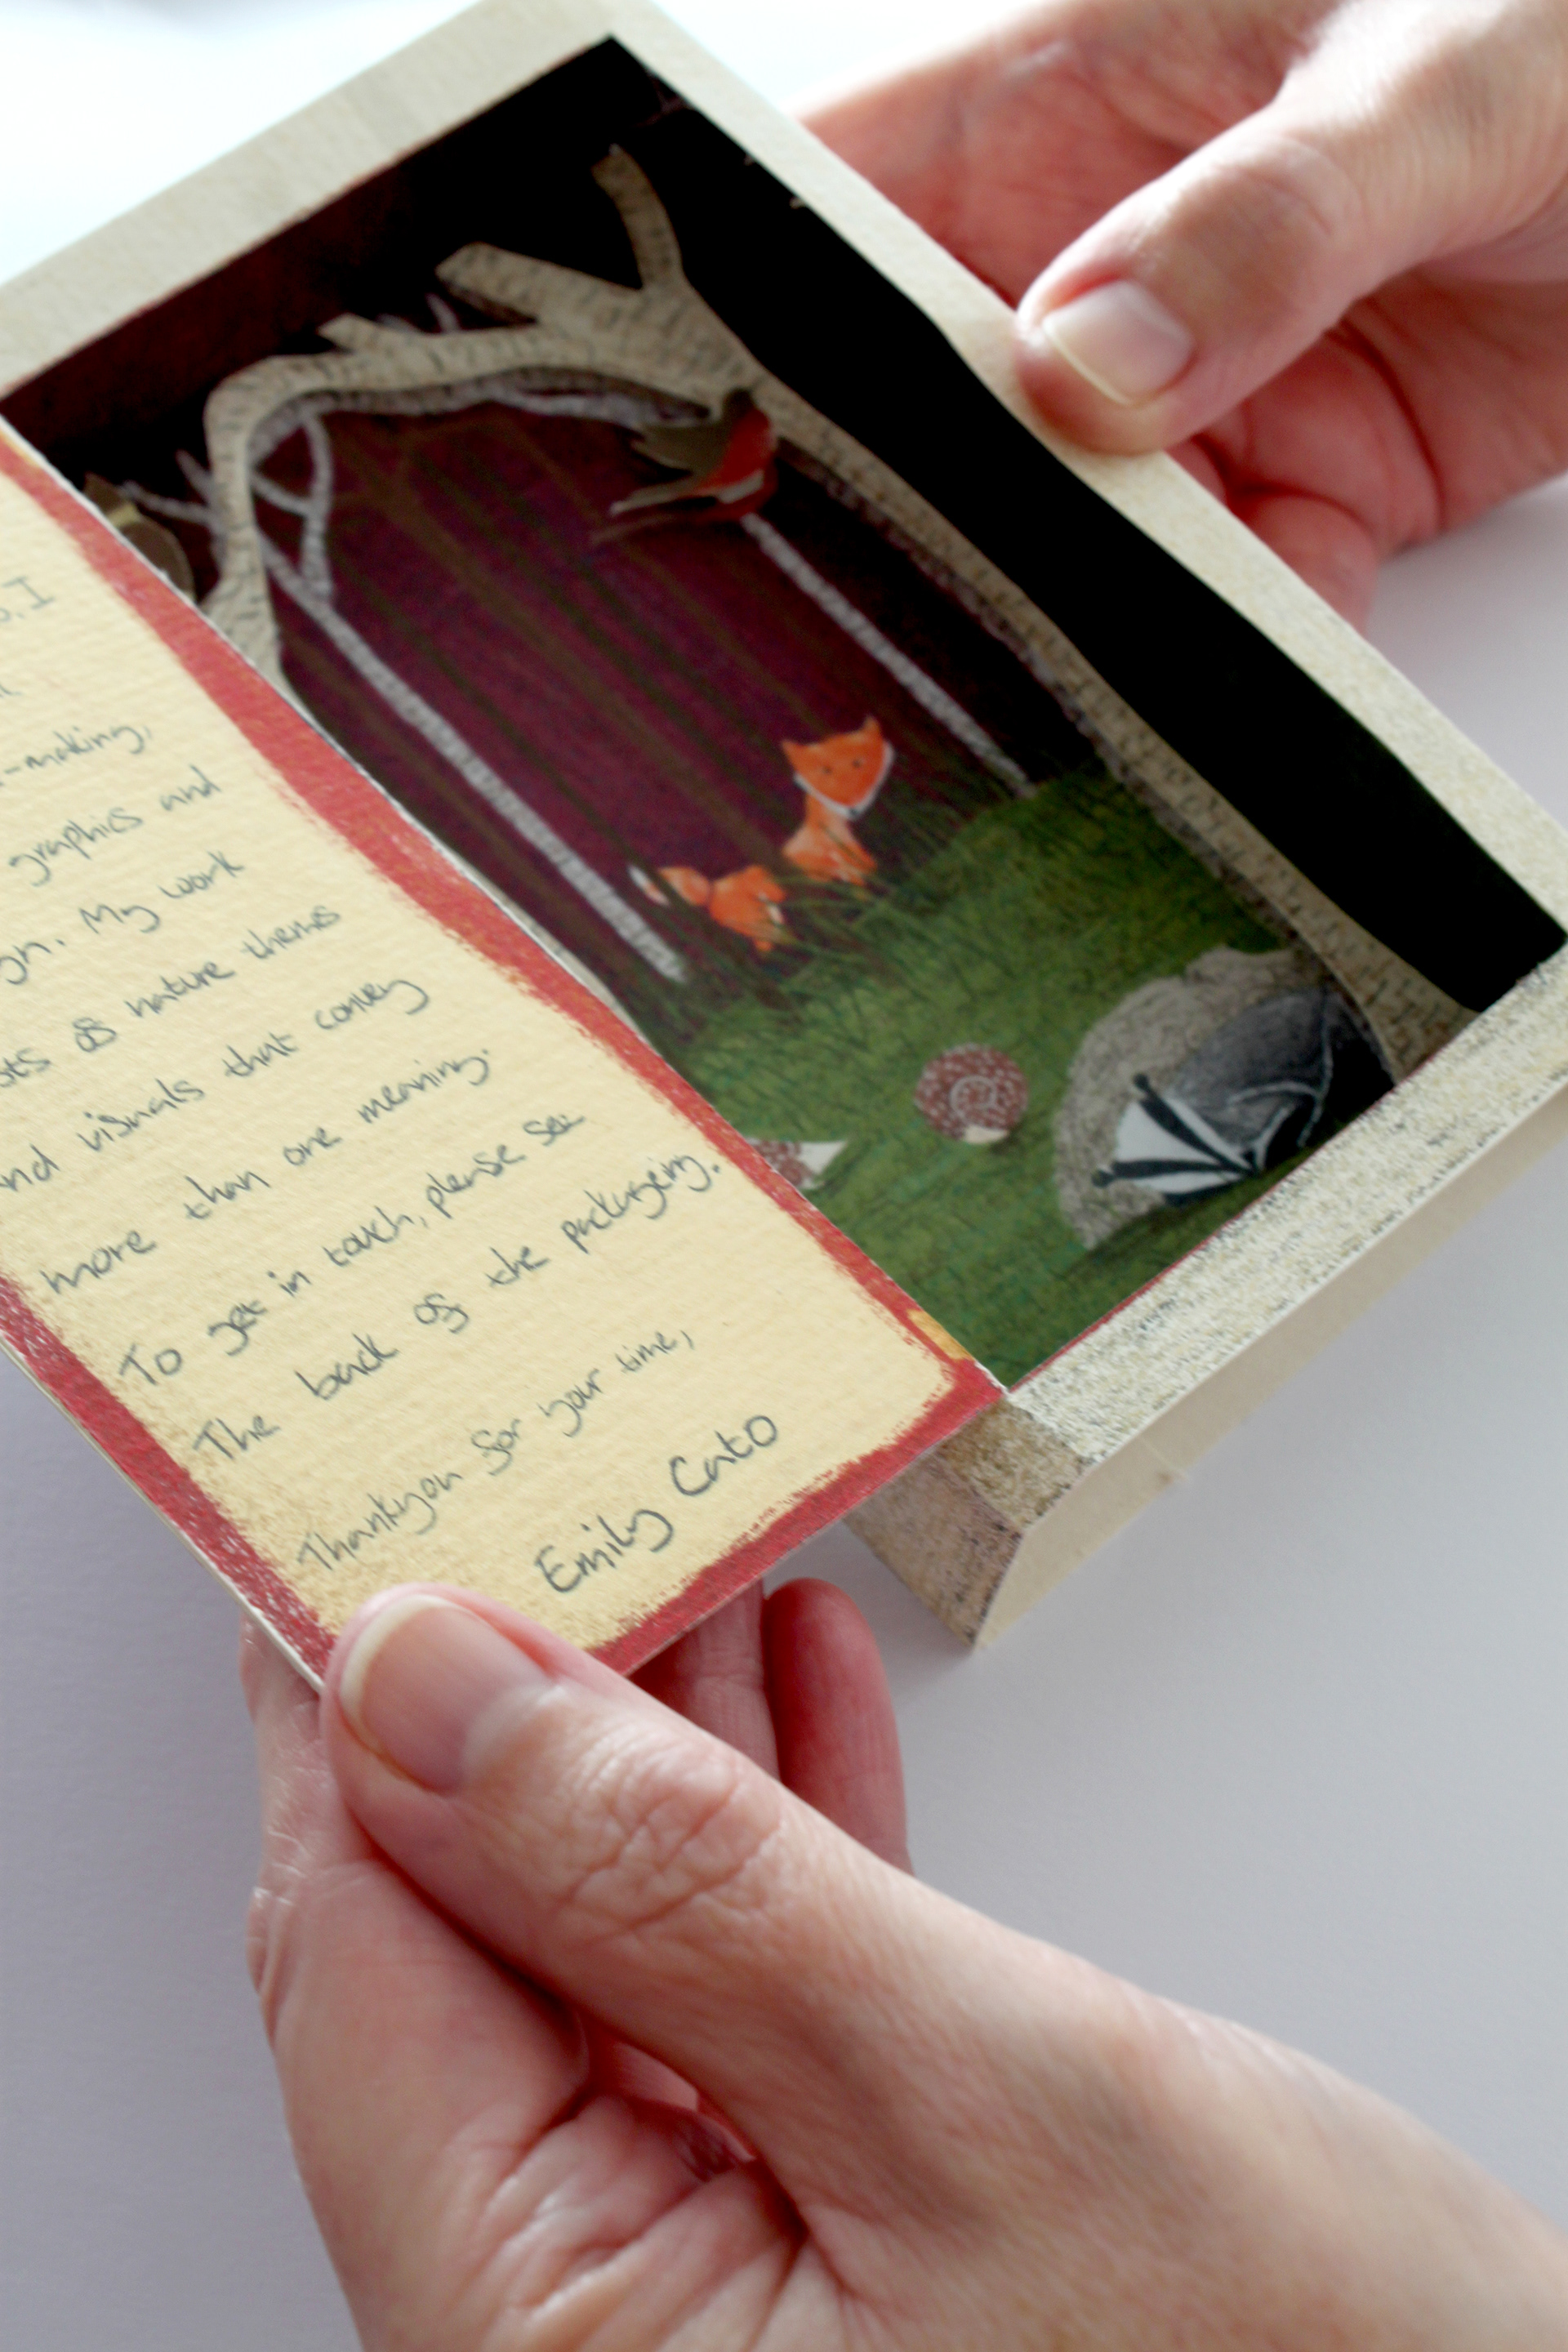 I
-making,
graphics and
My work
of nature themes
visuals that convey
more than one meaning.
To get in touch, please see
The back of the packaging.
Thankyou for your time,
Emily Cato